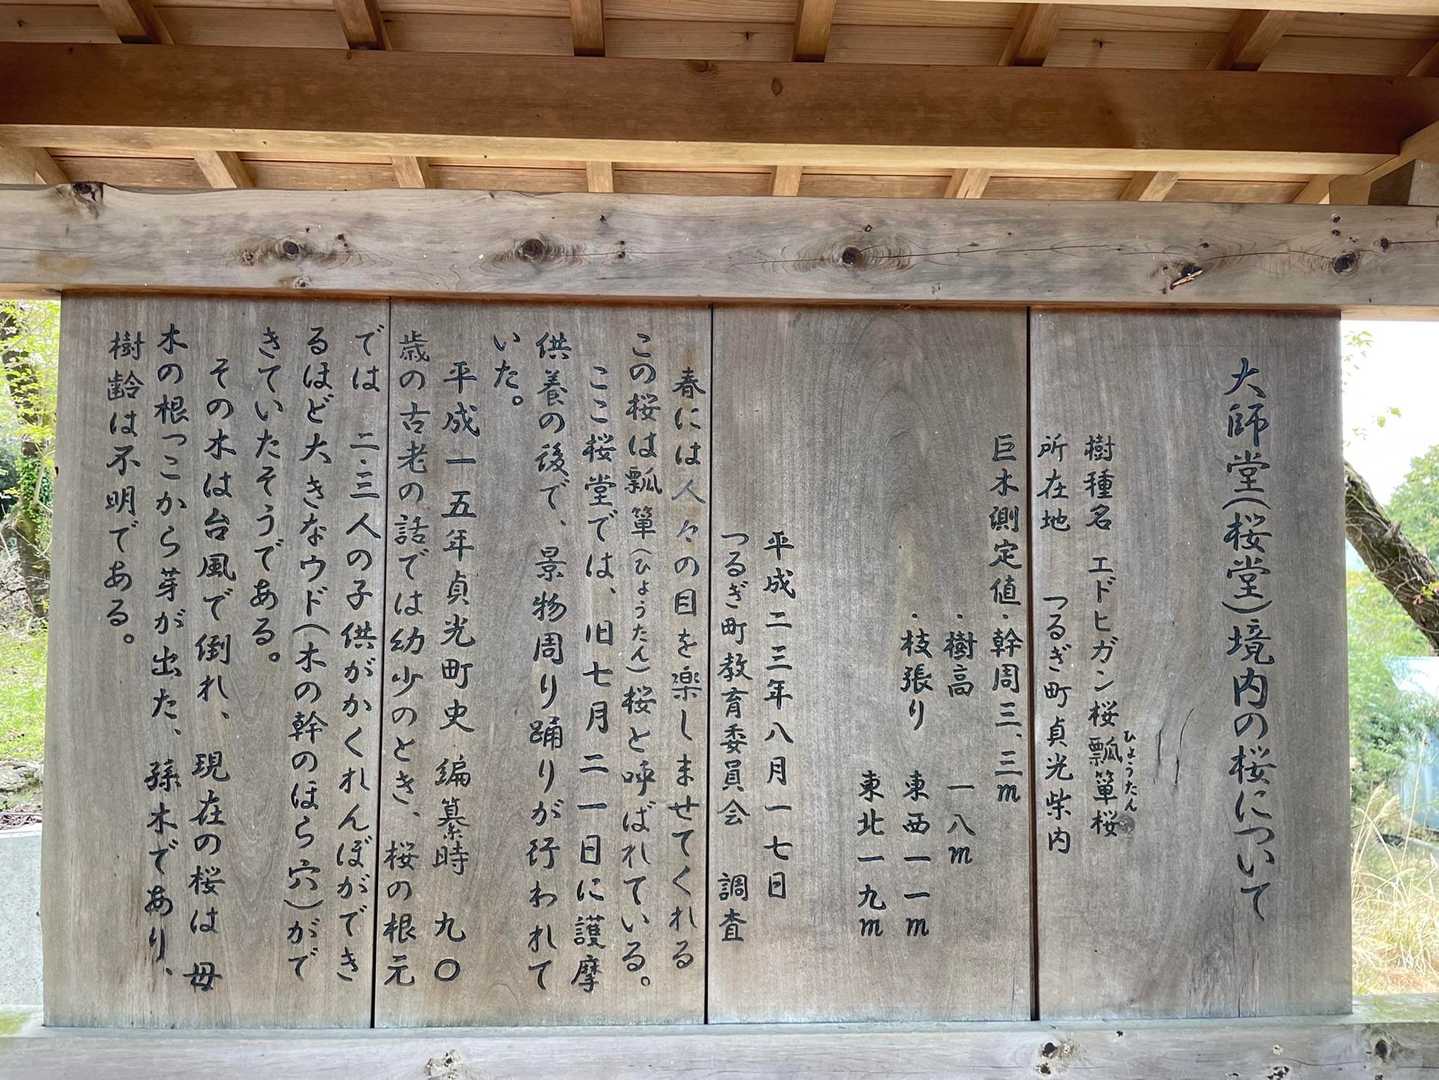 大師堂(桜堂)境内の桜について
樹種名 エドヒガン桜瓢箪桜
ひょうたん
所在地 つるぎ町貞光柴内
巨木測定値・幹周三、三m
・樹高 一八m
・枝張り 東西一一m
東北一九m
平成二三年八月一七日
つるぎ町教育委員会 調査
春には人々の目を楽しませてくれる
この桜は瓢箪(ひょうたん)桜と呼ばれている。
ここ桜堂では、旧七月二一日に護摩
供養の後で、景物周り踊りが行われて
いた。
平成一五年貞光町史編纂時 九〇
歳の古老の話では幼少のとき、桜の根元
では 二・三人の子供がかくれんぼができ
るほど大きなウド(木の幹のほら穴)がで
きていたそうである。
その木は台風で倒れ、現在の桜は母
木の根っこから芽が出た、孫木であり、
樹齢は不明である。